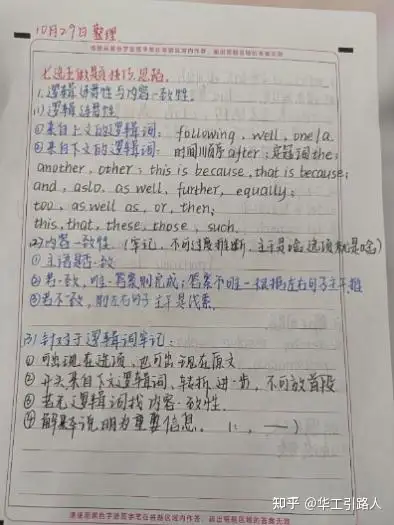 10月29日整理
请在黑色字迹签字笔在答题区域内作答,超出答题区域的答案无效
七选五做题技巧思路
1.逻辑连贯性与内容一致性。
(1)逻辑连贯性
①来自上文的逻辑词: following, well, one/a.
②来自下文的逻辑词: 时间顺序after;定冠词the;
another, other; this is because, that is because;
and, aslo, as well, further, equally;
too, as well as, or, then;
this, that, these, those, such.
(2)内容一致性(牢记,不可过度推断,主干是啥选项就是啥)
①主语是否一致
②若一致,唯一答案则完成;答案不唯一根据左右句子主干推
③若不一致,则左右句子主干是线索.
(3)针对于逻辑词牢记:
①可出现在选项,也可出现在原文
②开头来自下文逻辑词,转折,进一步,不可放首段
③若无逻辑词找内容一致性.
④解释说明为重要信息. (:, —)
请在黑色字迹签字笔在答题区域内作答,超出答题区域的答案无效
知乎 @华工引路人